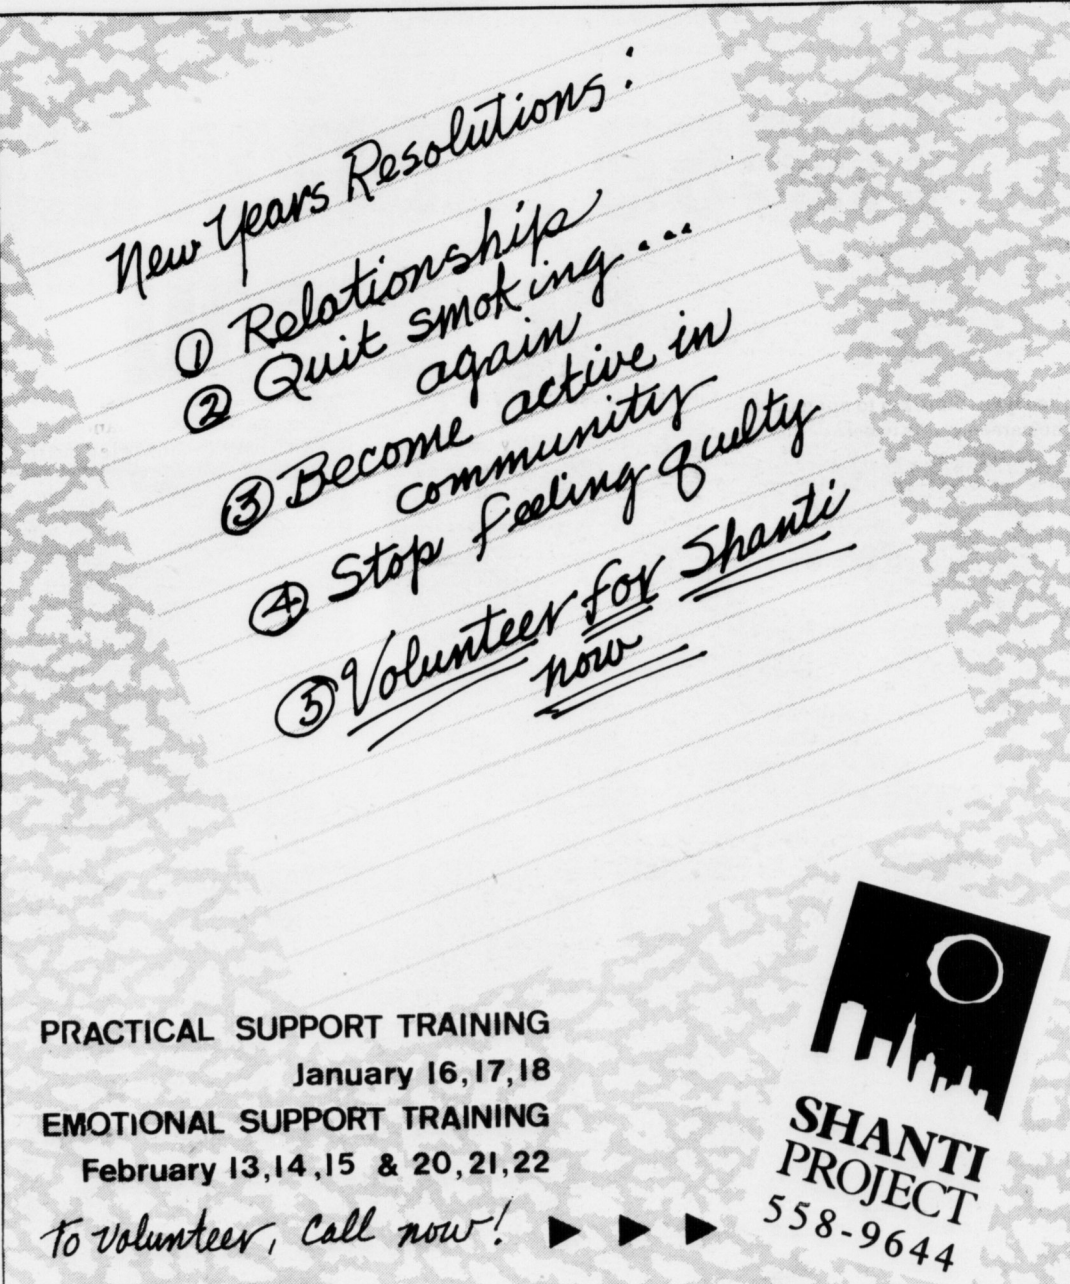 New Years Resolutions:
① Relationships
② Quit smoking....
again
③ Become active in
community
④ Stop feeling guilty
⑤ Volunteer for Shanti
now
PRACTICAL SUPPORT TRAINING
January 16,17,18
EMOTIONAL SUPPORT TRAINING
February 13,14,15 & 20,21,22
To volunteer, call now! ▶ ▶ ▶
SHANTI
PROJECT
558-9644